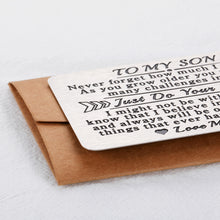 TO MY SON
Never forget how much
As you grow older you
many challenges
Just Do Your
I might not be
know that I believe
and always will be
things that ever
Love